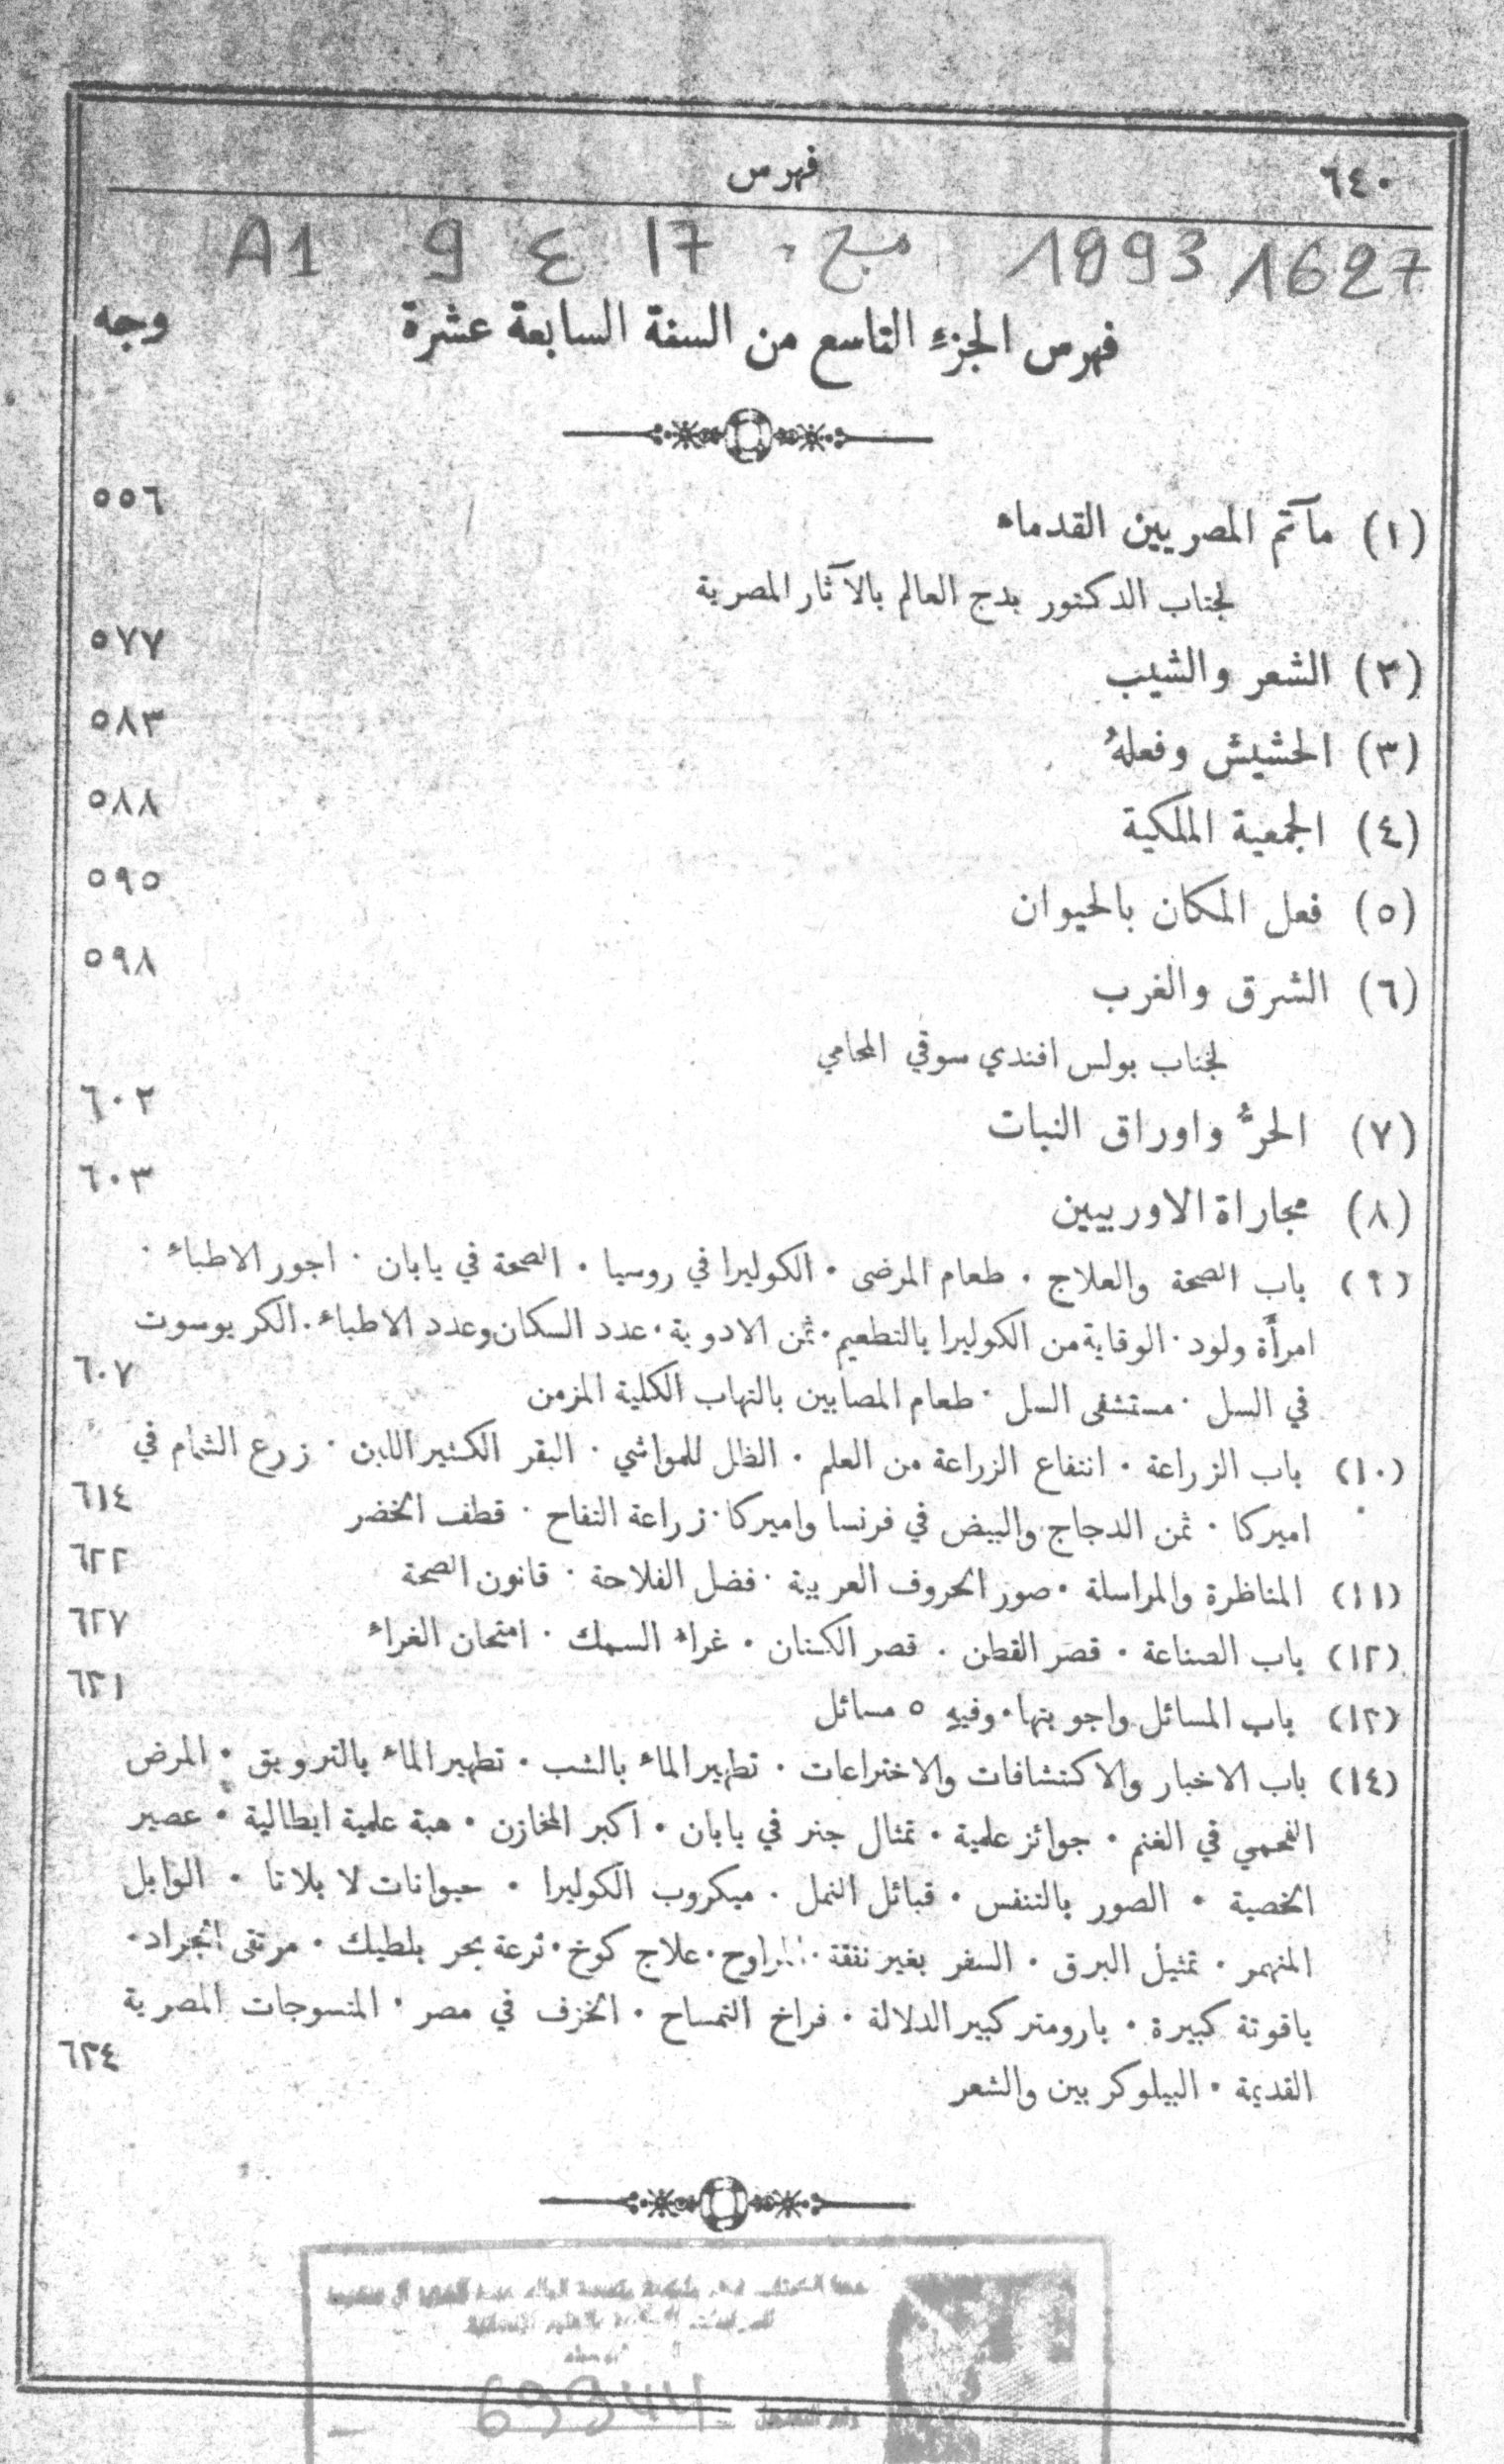 ٦٤٠ فهرس
A1 9 ع 17 مج. 1893 1627
فهرس الجزء التاسع من السنة السابعة عشرة وجه
(١) مآتم المصريين القدماء ٥٥٦
لجناب الدكتور بدج العالم بالآثار المصرية
(٢) الشعر والشيب ٥٧٧
(٣) الحشيش وفعلهُ ٥٨٣
(٤) الجمعية الملكية ٥٨٨
(٥) فعل المكان بالحيوان ٥٩٥
(٦) الشرق والغرب ٥٩٨
لجناب بولس افندي سوقي المحامي
(٧) الحرُّ واوراق النبات ٦٠٢
(٨) مجاراة الاوربيين ٦٠٣
(٩) باب الصحة والعلاج . طعام المرضى . الكوليرا في روسيا . الصحة في يابان . اجور الاطباء .
امرأة ولود . الوقاية من الكوليرا بالتطعيم . ثمن الادوية . عدد السكان وعدد الاطباء . الكريوسوت
في السل . مستشفى السل . طعام المصابين بالتهاب الكلية المزمن ٦٠٧
(١٠) باب الزراعة . انتفاع الزراعة من العلم . الظل للمواشي . البقر الكثير اللبن . زرع الشمام في
اميركا . ثمن الدجاج والبيض في فرنسا واميركا . زراعة التفاح . قطف الخضر ٦١٤
(١١) المناظرة والمراسلة . صور الحروف العربية . فضل الفلاحة . قانون الصحة ٦٢٢
(١٢) باب الصناعة . قصر القطن . قصر الكتان . غراء السمك . امتحان الغراء ٦٢٧
(١٣) باب المسائل واجوبتها . وفيهِ ٥ مسائل ٦٣١
(١٤) باب الاخبار والاكتشافات والاختراعات . تطهير الماء بالشب . تطهير الماء بالترويق . المرض
الفحمي في الغنم . جوائز علمية . تمثال جنر في يابان . اكبر المخازن . هبة علمية ايطالية . عصير
الخصية . الصور بالتنفس . قبائل النمل . ميكروب الكوليرا . حيوانات لا بلاتا . الوابل
المنهمر . تمثيل البرق . السفر بغير نفقة . المراوح . علاج كوخ . ترعة بحر بلطيك . مرتقى الجراد .
ياقوتة كبيرة . بارومتر كبير الدلالة . فراخ التمساح . الخزف في مصر . المنسوجات المصرية
القديمة . البيلوكربين والشعر ٦٣٤